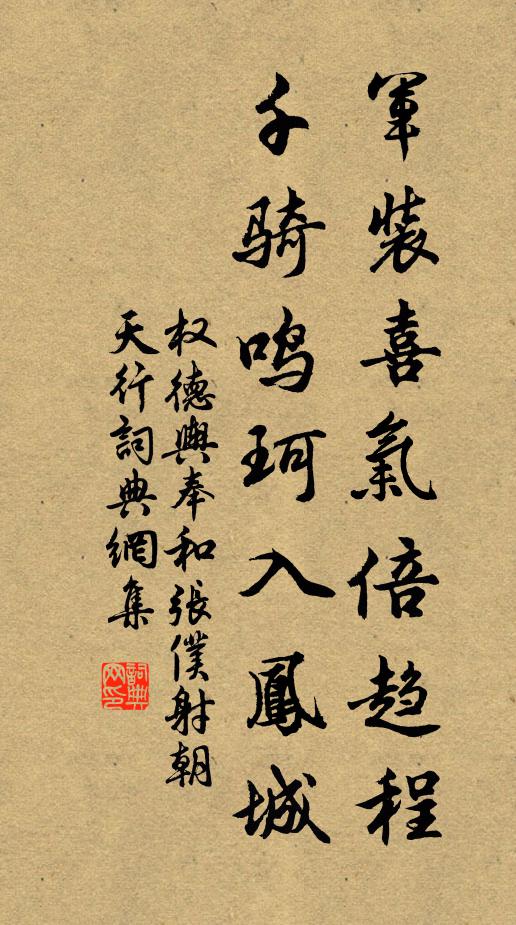 軍裝喜氣倍趨程
千骑鸣珂入鳳城
权德輿奉和張僕射朝
天行詞典網集
詞典网印